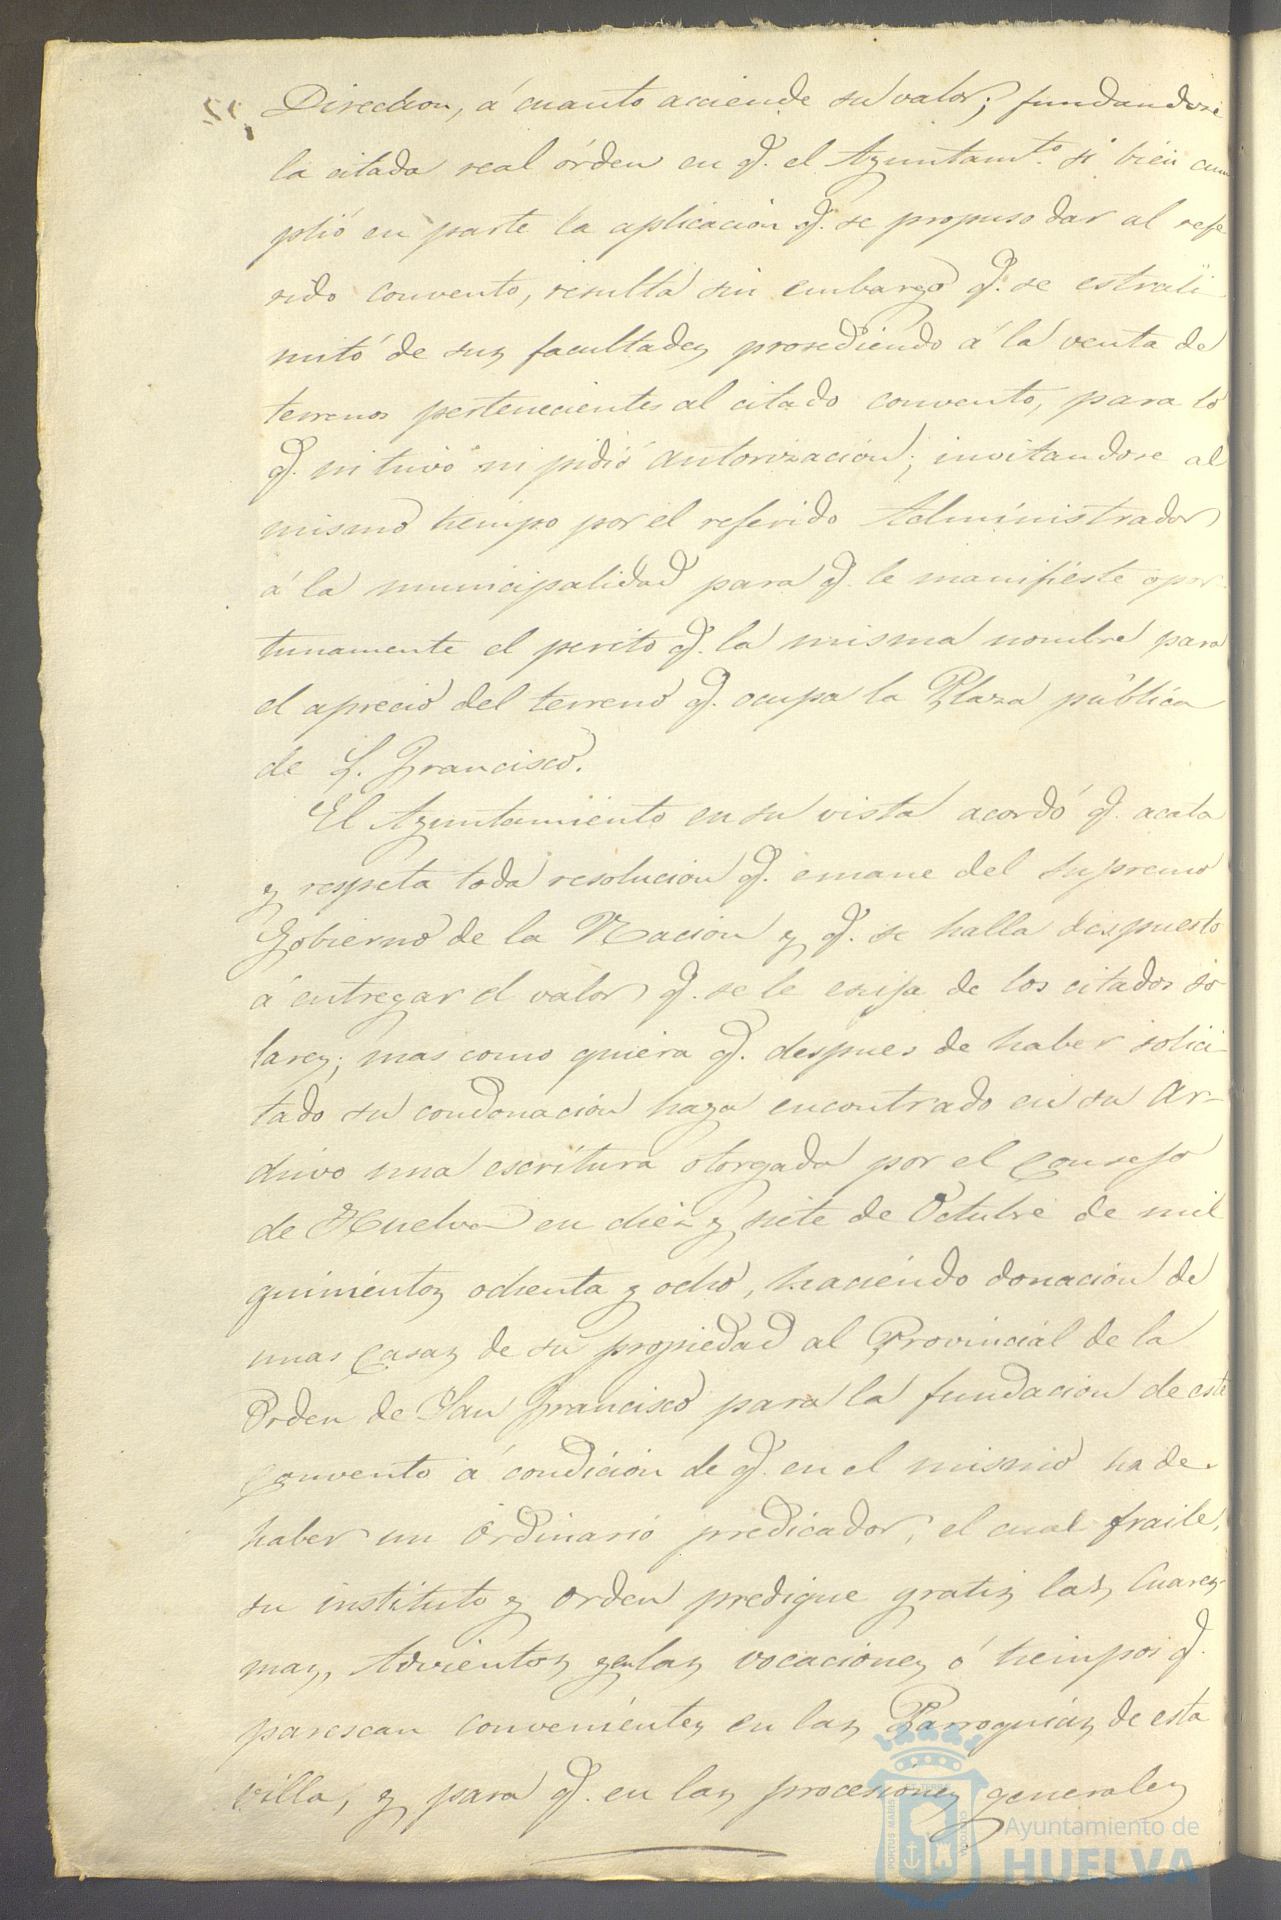 Direccion, á cuanto aciende su valor; fundandose
la citada real órden en q. el Ayuntamto. si bien cum
plió en parte la aplicacion q. se propuso dar al refe
rido convento, resulta sin embargo q. se estrali
mitó de sus facultades prosediendo á la venta de
terrenos pertenecientes al citado convento, para lo
q. ni tuvo ni pidió autorización; invitandose al
mismo tiempo por el referido Administrador
á la municipalidad para q. le manifieste opor-
tunamente el perito q. la misma nombre para
el aprecio del terreno q. ocupa la Plaza pública
de S. Francisco.
El Ayuntamiento en su vista acordó q. acata
y respeta toda resolucion q. emane del Supremo
Gobierno de la Nacion y q. se halla dispuesto
á entregar el valor q. se le exija de los citados so
lares; mas como quiera q. despues de haber solici-
tado su condonación haya encontrado en su Ar-
chivo una escritura otorgada por el Consejo
de Huelva en diez y siete de Octubre de mil
quinientos ochenta y ocho, haciendo donación de
unas casas de su propiedad al Provincial de la
Orden de San Francisco para la fundacion de este
convento á condición de q. en el mismo ha de
haber un Ordinario predicador, el cual fraile,
su instituto y orden predique gratis las Cuares-
mas, Advientos y en las vocaciones ó tiempos q.
parescan convenientes en las Parroquias de esta
villa, y para q. en las procesiones generales
PORTUS MARIS ET TERRÆ CUSTODIA
Ayuntamiento de
HUELVA